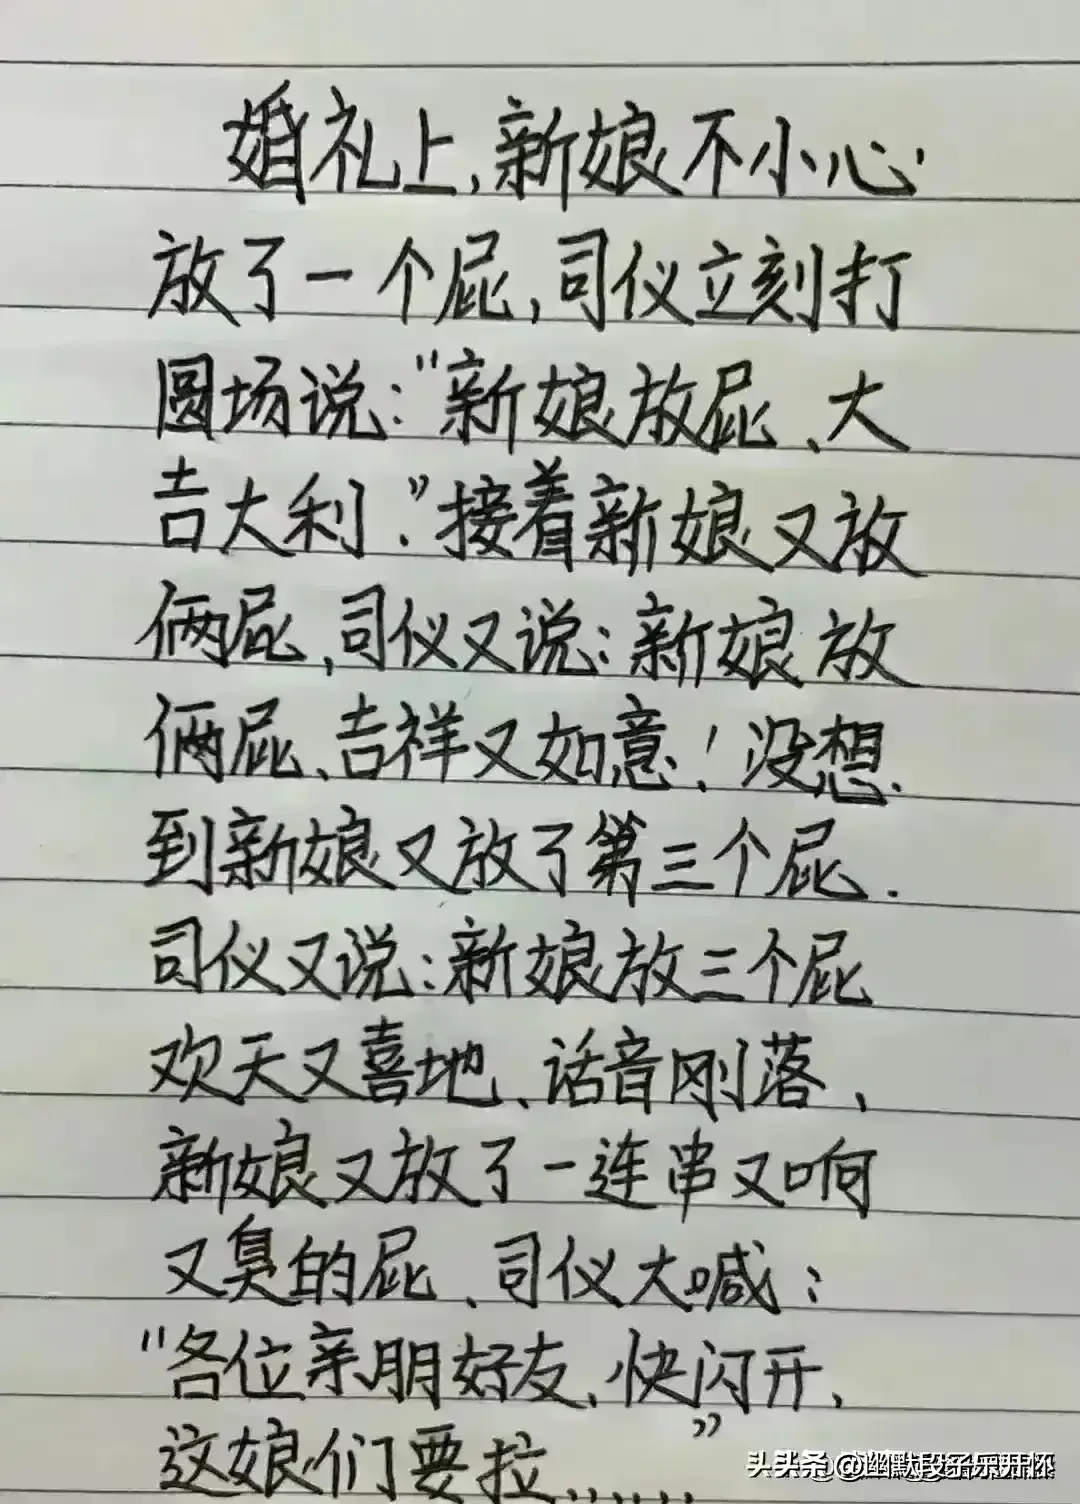 婚礼上,新娘不小心
放了一个屁,司仪立刻打
圆场说:"新娘放屁、大
吉大利."接着新娘又放
俩屁,司仪又说:新娘放
俩屁、吉祥又如意!没想
到新娘又放了第三个屁.
司仪又说:新娘放三个屁
欢天又喜地、话音刚落、
新娘又放了一连串又响
又臭的屁、司仪大喊:
"各位亲朋好友、快闪开、
这娘们要拉......"
头条 @幽默段子乐开怀